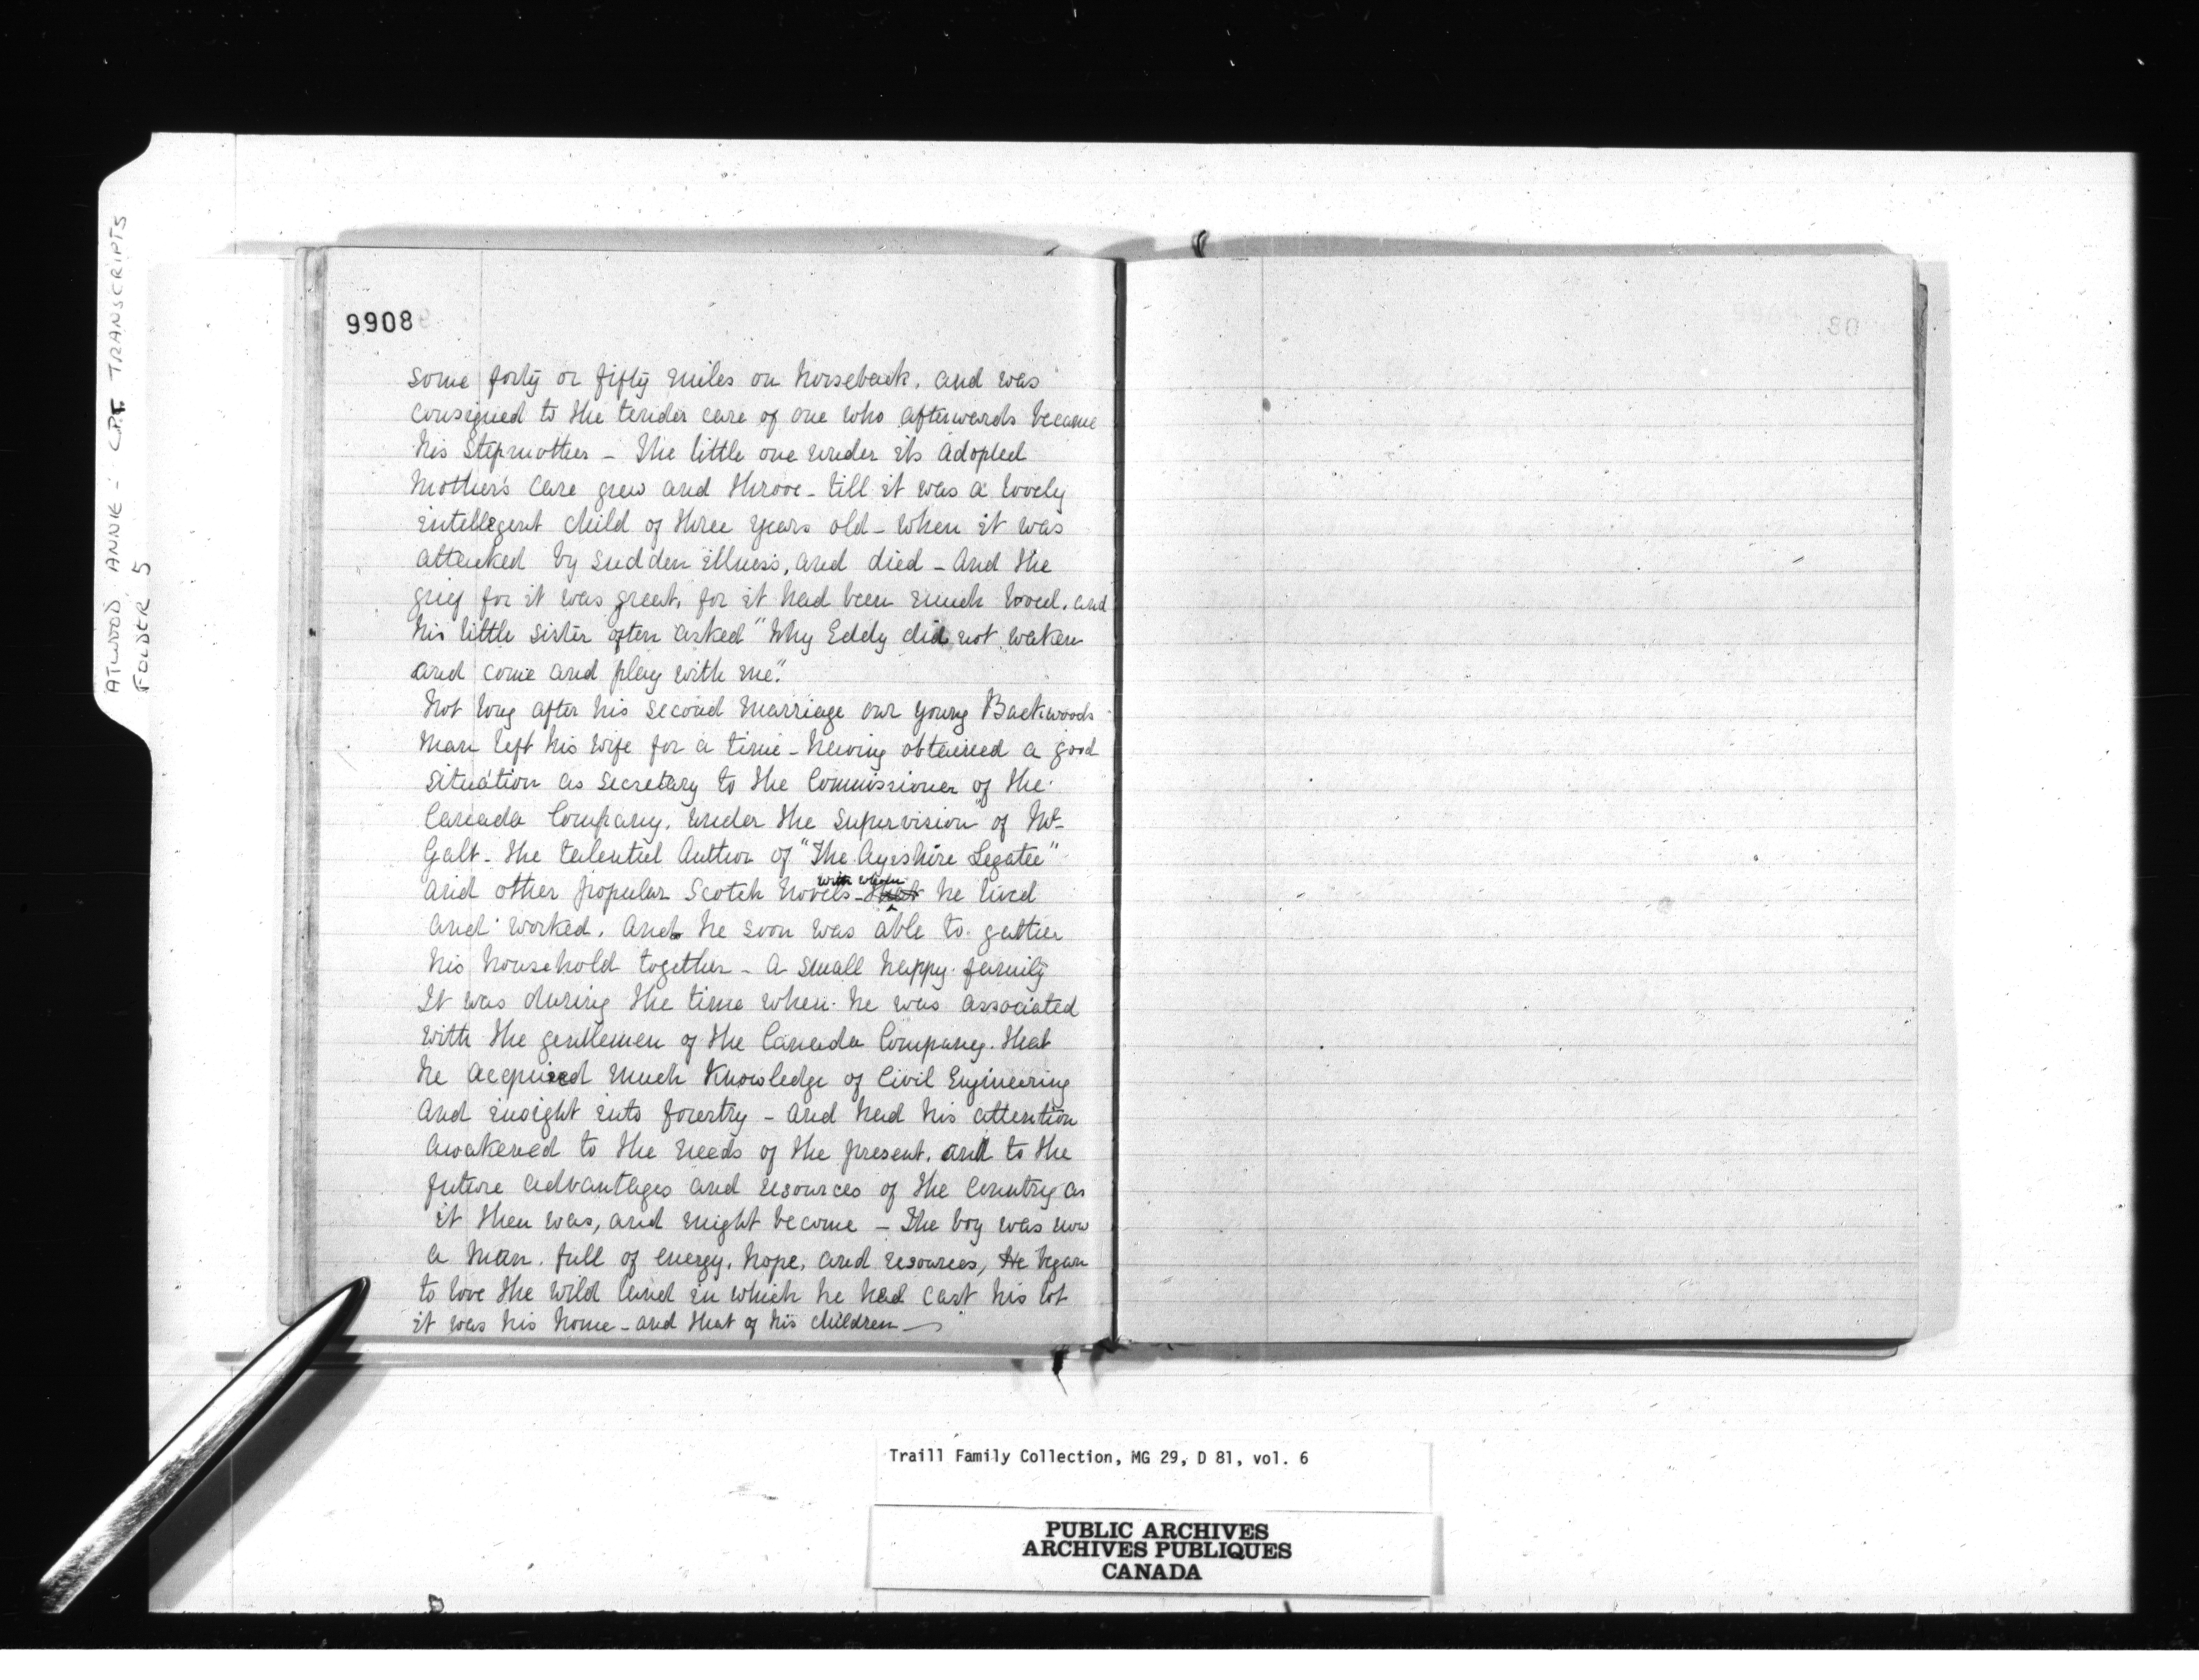 ATWOOD, ANNIE - C.P.T. TRANSCRIPTS
FOLDER 5
9908
some forty or fifty miles on horseback, and was
consigned to the tender care of one who afterwards became
his Stepmother - The little one under its adopted
Mother's care grew and throve - till it was a lovely
intelligent child of three years old - when it was
attacked by sudden illness, and died - And the
grief for it was great, for it had been much loved, and
his little sister often asked "Why Eddy did not waken
and come and play with me".
Not long after his second Marriage our young Backwoods
Man left his wife for a time - having obtained a good
situation as Secretary to the Commissioner of the
Canada Company, under the supervision of Mr
Galt - the talented Author of "The Ayrshire Legatee"
and other popular Scotch Novels - with whom he lived
and worked. And he soon was able to gather
his household together - a small happy family
It was during the time when he was associated
with the gentlemen of the Canada Company, that
he acquired much Knowledge of Civil Engineering
and insight into forestry - and had his attention
awakened to the needs of the present, and to the
future advantages and resources of the Country as
it then was, and might become - The boy was now
a Man. full of energy, hope, and resources, He began
to love the wild land in which he had cast his lot
it was his home - and that of his children -
30
Traill Family Collection, MG 29, D 81, vol. 6
PUBLIC ARCHIVES
ARCHIVES PUBLIQUES
CANADA